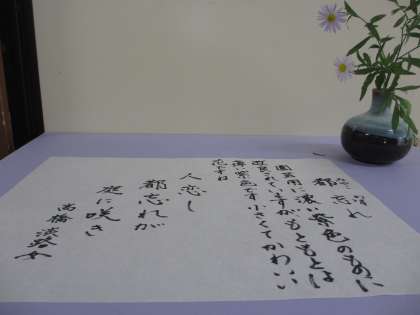 都忘れ
園芸用に濃い紫色のものに
改良されていますがもともとは
薄紫色です小さくてかわいい
花ですね
人恋し
都忘れが
庭に咲き
高橋淡路女